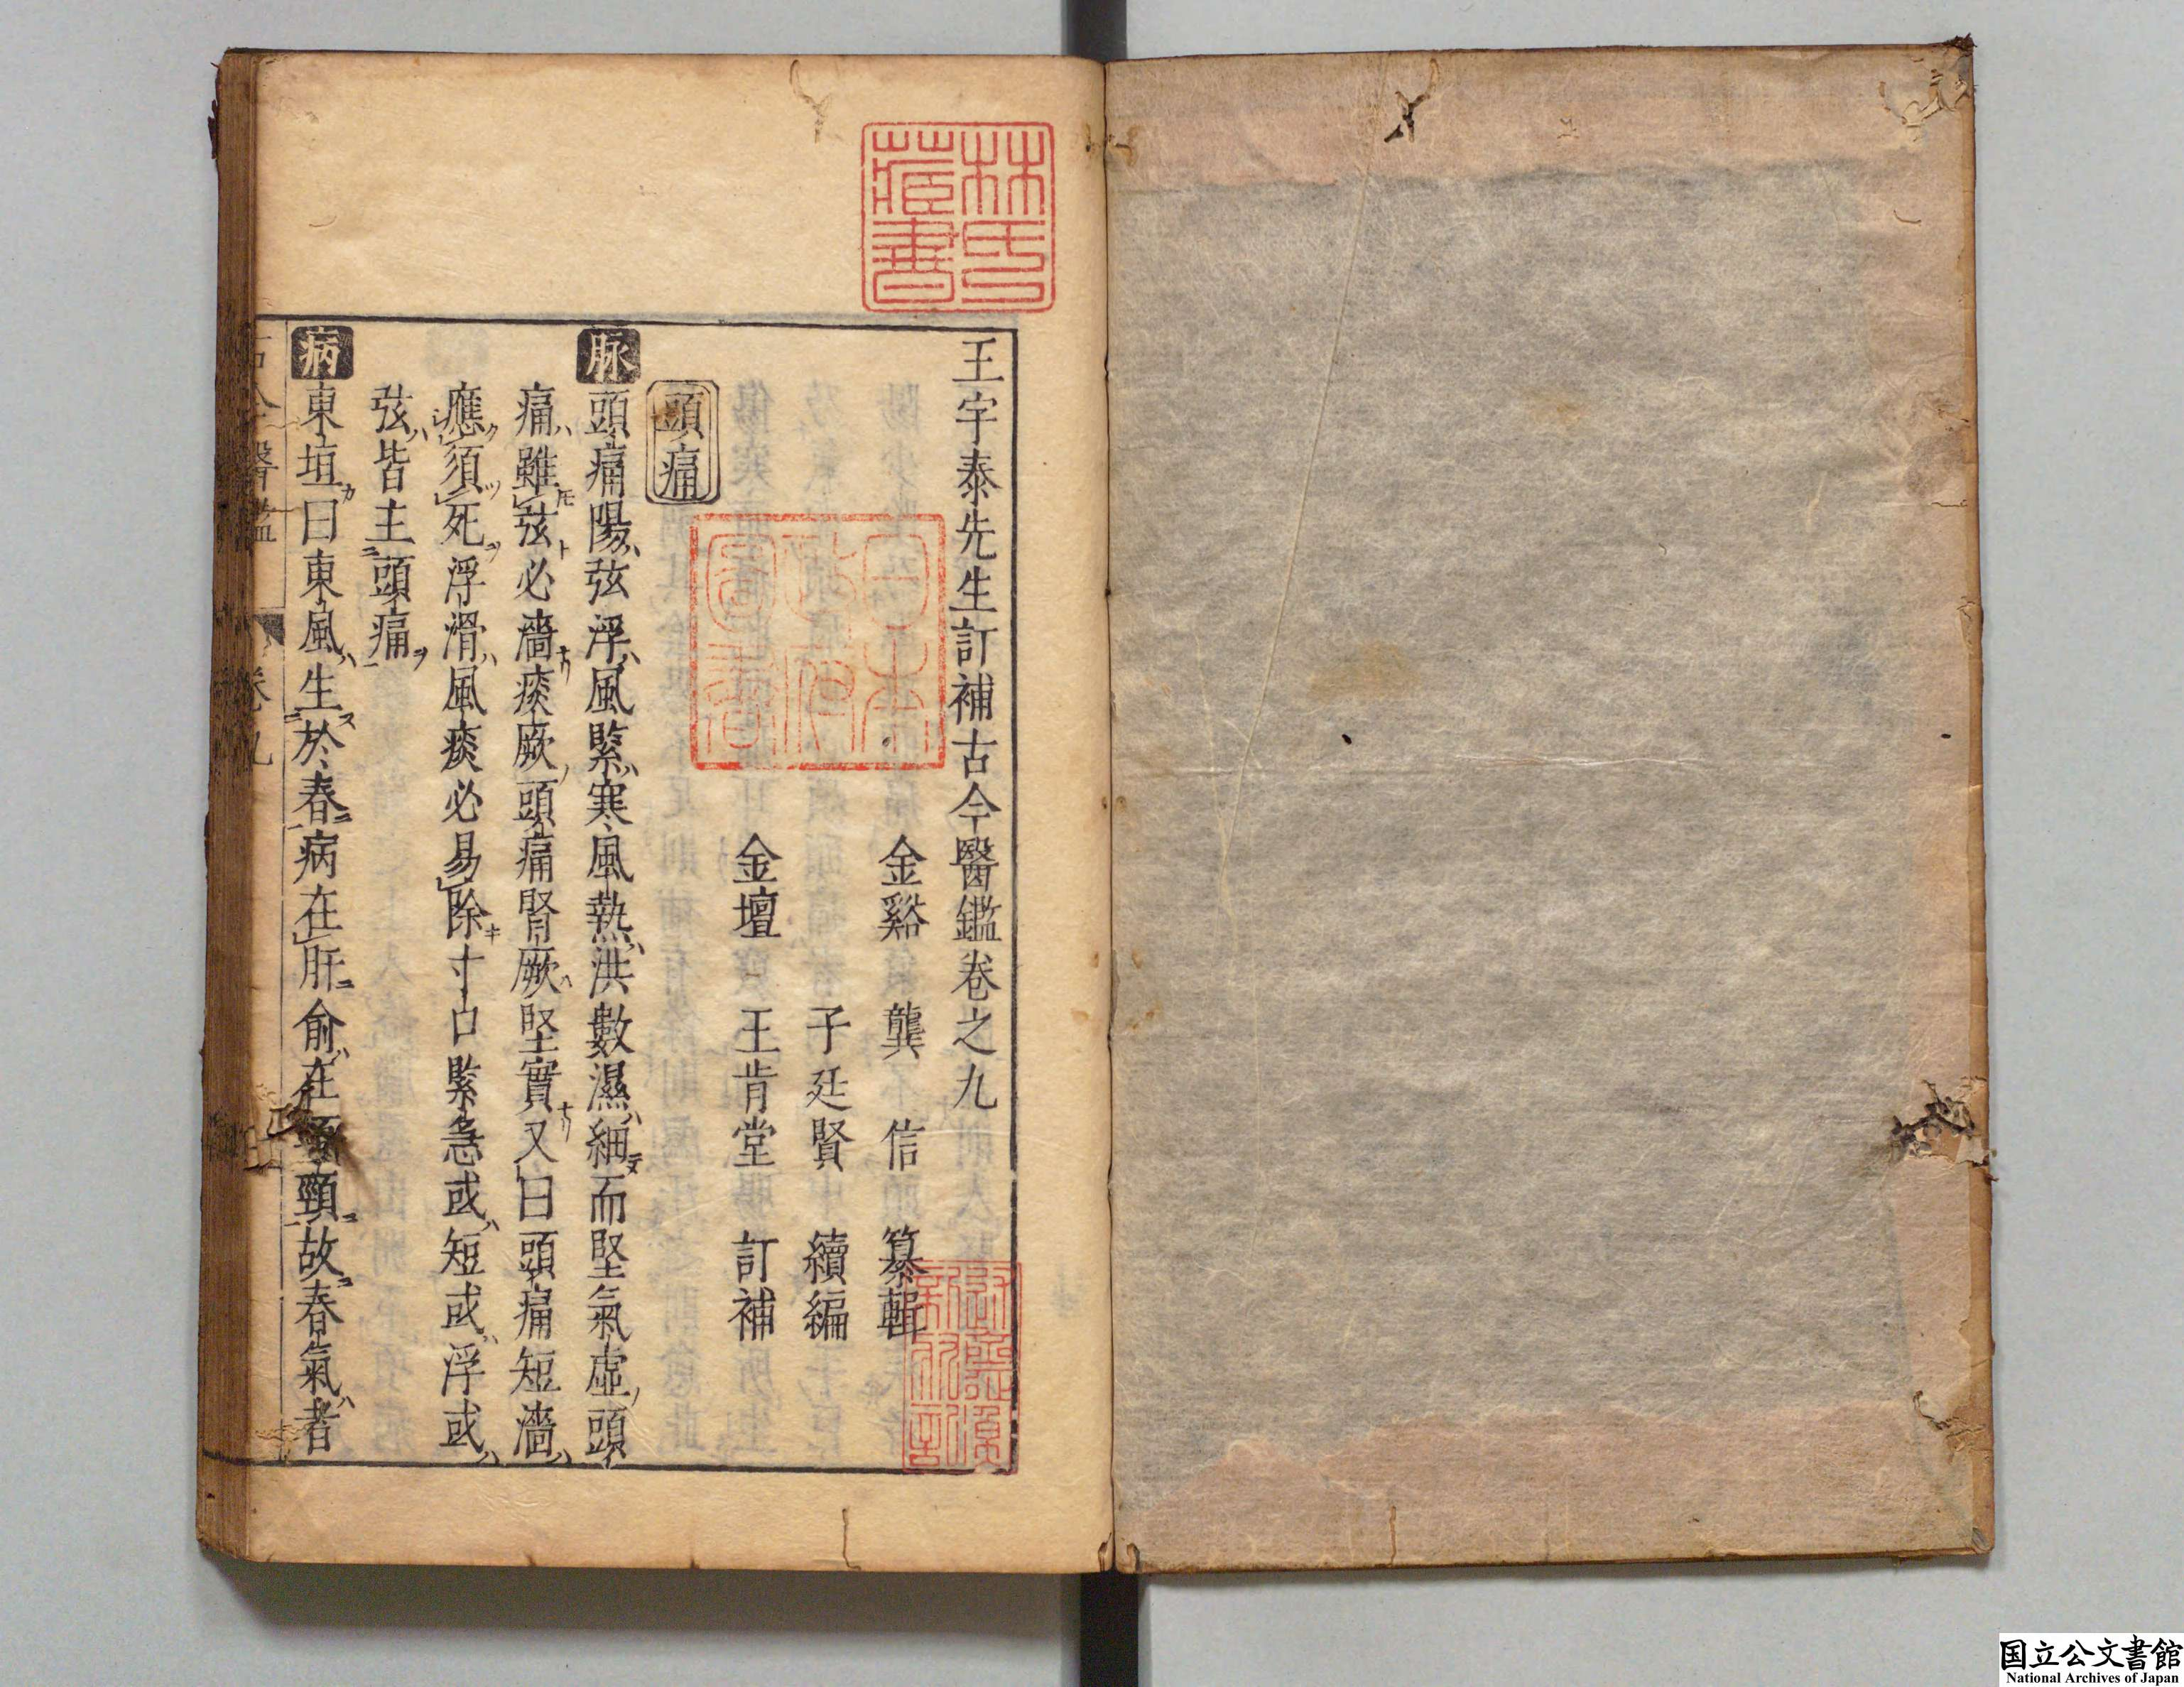 林氏藏書
王宇泰先生訂補古今醫鑑卷之九
金谿 龔 信 纂輯
子 廷 賢 續編
金壇 王肯堂 訂補
日本政府圖書
頭痛
脉 頭痛陽弦浮風緊寒風熱洪數濕細而堅氣虛頭
痛雖弦必濇痰厥頭痛腎厥堅實又曰頭痛短濇
應須死浮滑風痰必易除寸口緊急或短或浮或
弦皆主頭痛
病 東垣曰東風生於春病在肝俞在頸故春氣者
卷九
国立公文書館
National Archives of Japan